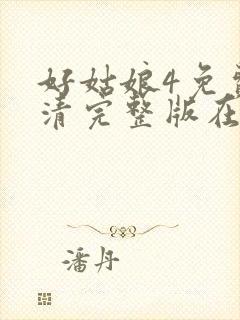 好姑娘4免费
清完整版在
潘丹